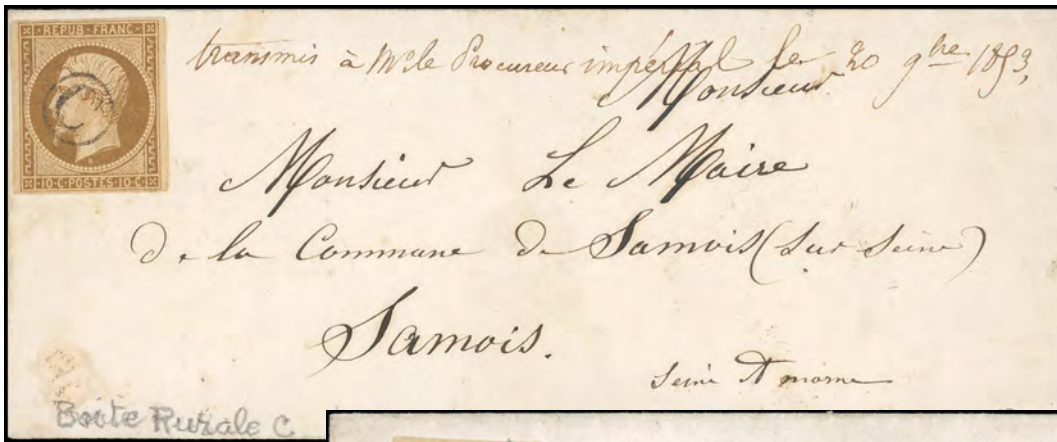 REPUB FRANC
10 C POSTES 10 C
C
transmis à Mr le Procureur impérial le 20 9bre 1853,
Monsieur
Monsieur Le Maire
de la Commune de Samois (sur Seine)
Samois.
Seine et marne
Boite Rurale C